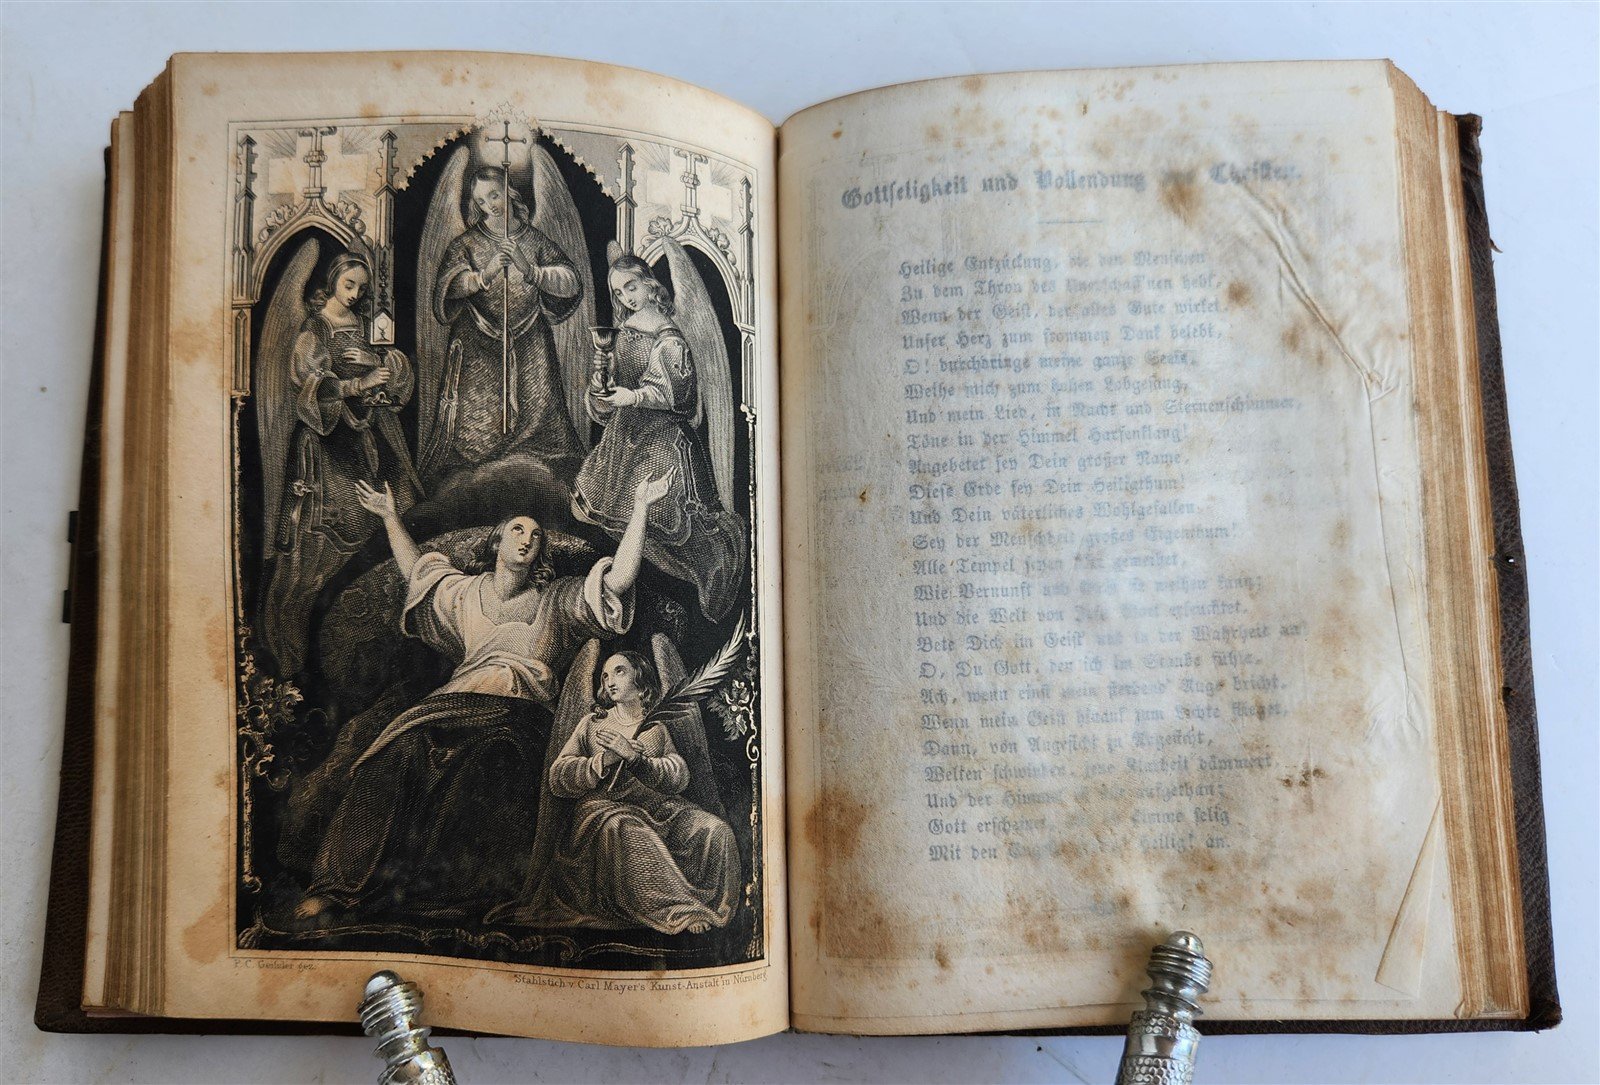 P. C. Geissler gez.
Stahlstich v. Carl Mayer's Kunst-Anstalt in Nürnberg
Gottseligkeit und Vollendung Christen.
Heilige Entzückung, die den Menschen
Zu dem Thron des Unerschaff'nen hebt,
Wenn der Geist, der alles Gute wirket,
Unser Herz zum frommen Dank belebt,
O! durchdringe meine ganze Seele,
Weihe mich zum hohen Lobgesang,
Und mein Lied, in Nacht und Sternenschimmer,
Töne in der Himmel Harfenklang!
Angebetet sey Dein großer Name,
Diese Erde sey Dein Heiligthum!
Und Dein väterliches Wohlgefallen,
Sey der Menschheit großes Eigenthum!
Alle Tempel seyen geweihet,
Wie Vernunft und weihen kann;
Und die Welt von erleuchtet,
Bete Dich im Geist und in der Wahrheit an!
O, Du Gott, den ich im Staube fühle,
Ach, wenn einst mein sterbend Auge bricht,
Wenn mein Geist hinauf zum Lichte
Dann, von Angesicht zu Angesicht,
Welten schwinden, jene Klarheit dämmert,
Und der Himmel aufgethan;
Gott erscheinet, selig
Mit den heiligt an.